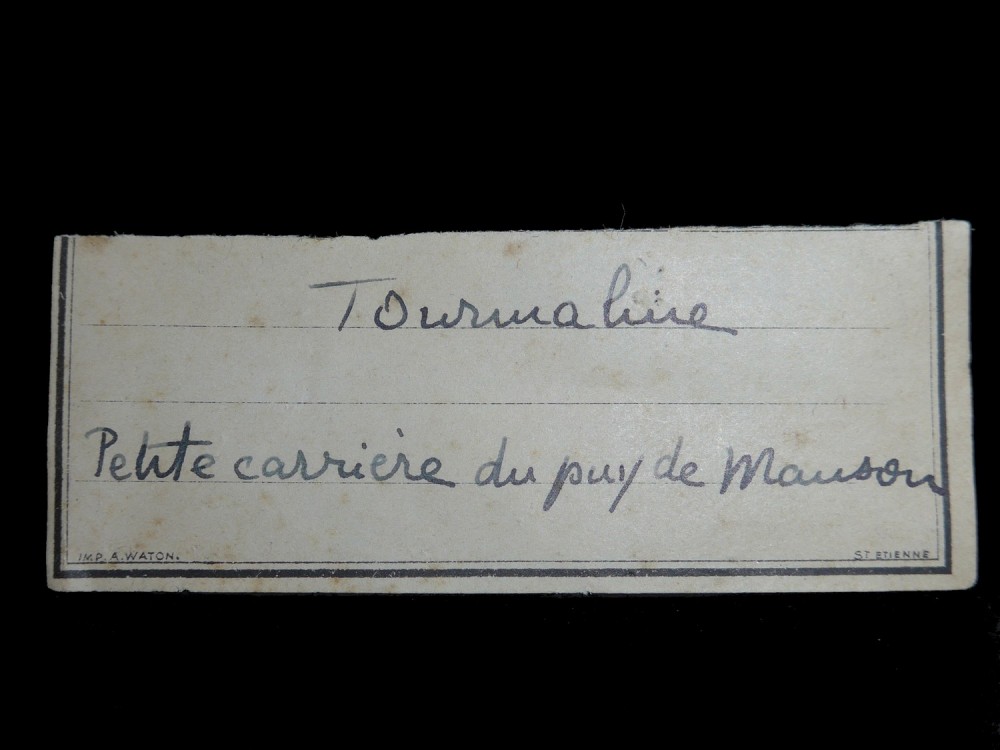 Tourmaline
Petite carrière du puy de Manson
IMP. A. WATON. ST ETIENNE